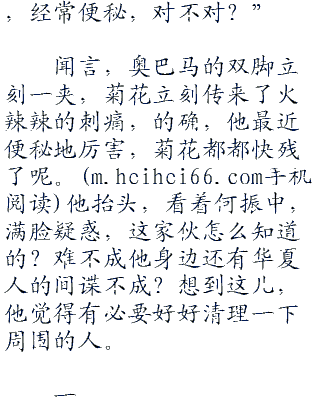 ，经常便秘，对不对？”
闻言，奥巴马的双脚立
刻一夹，菊花立刻传来了火
辣辣的刺痛，的确，他最近
便秘地厉害，菊花都都快残
了呢。(m.hcihci66.com手机
阅读)他抬头，看着何振中，
满脸疑惑，这家伙怎么知道
的？难不成他身边还有华夏
人的间谍不成？想到这儿，
他觉得有必要好好清理一下
周围的人。
一